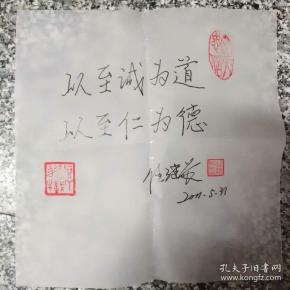 以至诚为道
以至仁为德
2011.5.31
孔夫子旧书网
www.kongfz.com